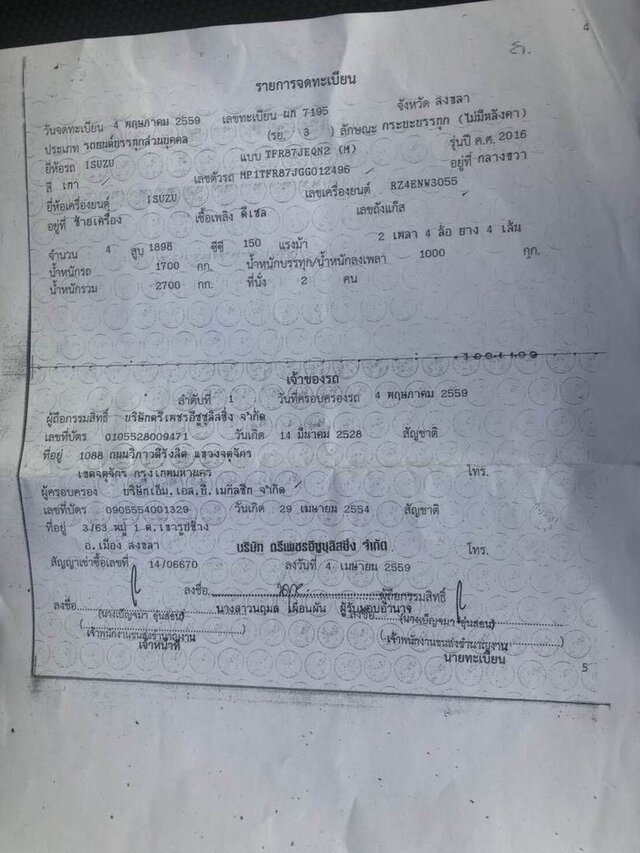 4
รายการจดทะเบียน
วันจดทะเบียน 4 พฤษภาคม 2559 เลขทะเบียน ผก 7195 จังหวัด สงขลา
ประเภท รถยนต์บรรทุกส่วนบุคคล (รย. 3 ) ลักษณะ กระบะบรรทุก (ไม่มีหลังคา)
ยี่ห้อรถ ISUZU แบบ TFR87JEQN2 (M) รุ่นปี ค.ศ. 2016
สี เทา เลขตัวรถ MP1TFR87JGG012496 อยู่ที่ กลางขวา
ยี่ห้อเครื่องยนต์ ISUZU เลขเครื่องยนต์ RZ4ENW3055
อยู่ที่ ซ้ายเครื่อง เชื้อเพลิง ดีเซล เลขถังแก๊ส
จำนวน 4 สูบ 1898 ซีซี 150 แรงม้า 2 เพลา 4 ล้อ ยาง 4 เส้น
น้ำหนักรถ 1700 กก. น้ำหนักบรรทุก/น้ำหนักลงเพลา 1000 กก.
น้ำหนักรวม 2700 กก. ที่นั่ง 2 คน
เจ้าของรถ
ลำดับที่ 1 วันที่ครอบครองรถ 4 พฤษภาคม 2559
ผู้ถือกรรมสิทธิ์ บริษัทตรีเพชรอีซูซุลิสซิ่ง จำกัด
เลขที่บัตร 0105528009471 วันเกิด 14 มีนาคม 2528 สัญชาติ
ที่อยู่ 1088 ถนนวิภาวดีรังสิต แขวงจตุจักร
เขตจตุจักร กรุงเทพมหานคร โทร.
ผู้ครอบครอง บริษัทเอ็ม.เอส.ที. เมทัลชีท จำกัด
เลขที่บัตร 0905554001329 วันเกิด 29 เมษายน 2554 สัญชาติ
ที่อยู่ 3/63 หมู่ 1 ต.เขารูปช้าง
อ.เมือง สงขลา บริษัท ตรีเพชรอีซูซุลิสซิ่ง จำกัด โทร.
สัญญาเช่าซื้อเลขที่ 14/06670 ลงวันที่ 4 เมษายน 2559
ลงชื่อ ผู้ถือกรรมสิทธิ์
ลงชื่อ นางดาวนฤมล เผือนผัน ผู้รับมอบอำนาจ ลงชื่อ
(นางเบ็ญจมา อุ่นสอน) (นางเบ็ญจมา อุ่นสอน)
เจ้าพนักงานขนส่งชำนาญงาน เจ้าพนักงานขนส่งชำนาญงาน
เจ้าหน้าที่ นายทะเบียน
5